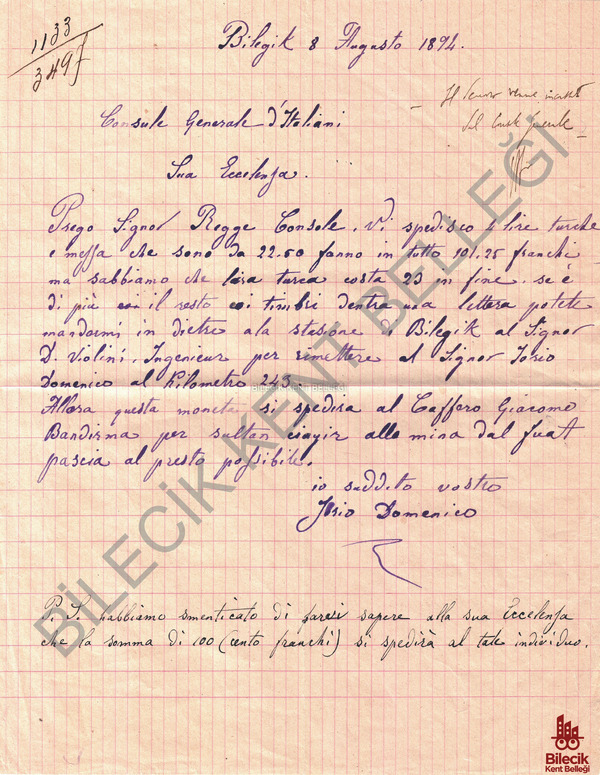 1133
3497
Bilegik 8 Augusto 1894.
Il denaro venne
Consule Generale d'Italiani
Sua Eccelenza.
Prego Signor Regge Console. Vi spedisco 4 lire turche
e messa che sono da 22.50 fanno in tutto 101.25 franchi
ma sabbiamo che lira turca costa 23 in fine. se è
di più con il resto coi timbri dentra una lettera potete
mandarmi in dietre ala stasione di Bilegik al Signor
D. Violini. Ingenieur per remettere al Signor Iorio
Domenico al Kilometro 243.
Allora questa moneta si spedira al Caffero Giacomo
Bandirma per sultan ciayir alla mina dal fuat
pascia al presto possibile.
io suddito vostro
Iorio Domenico
P. S. habbiamo smenticato di farvi sapere alla sua Eccelenza
che la somma di 100 (cento franchi) si spedirà al tale individuo.
BİLECİK KENT BELLEĞİ
Bilecik
Kent Belleği